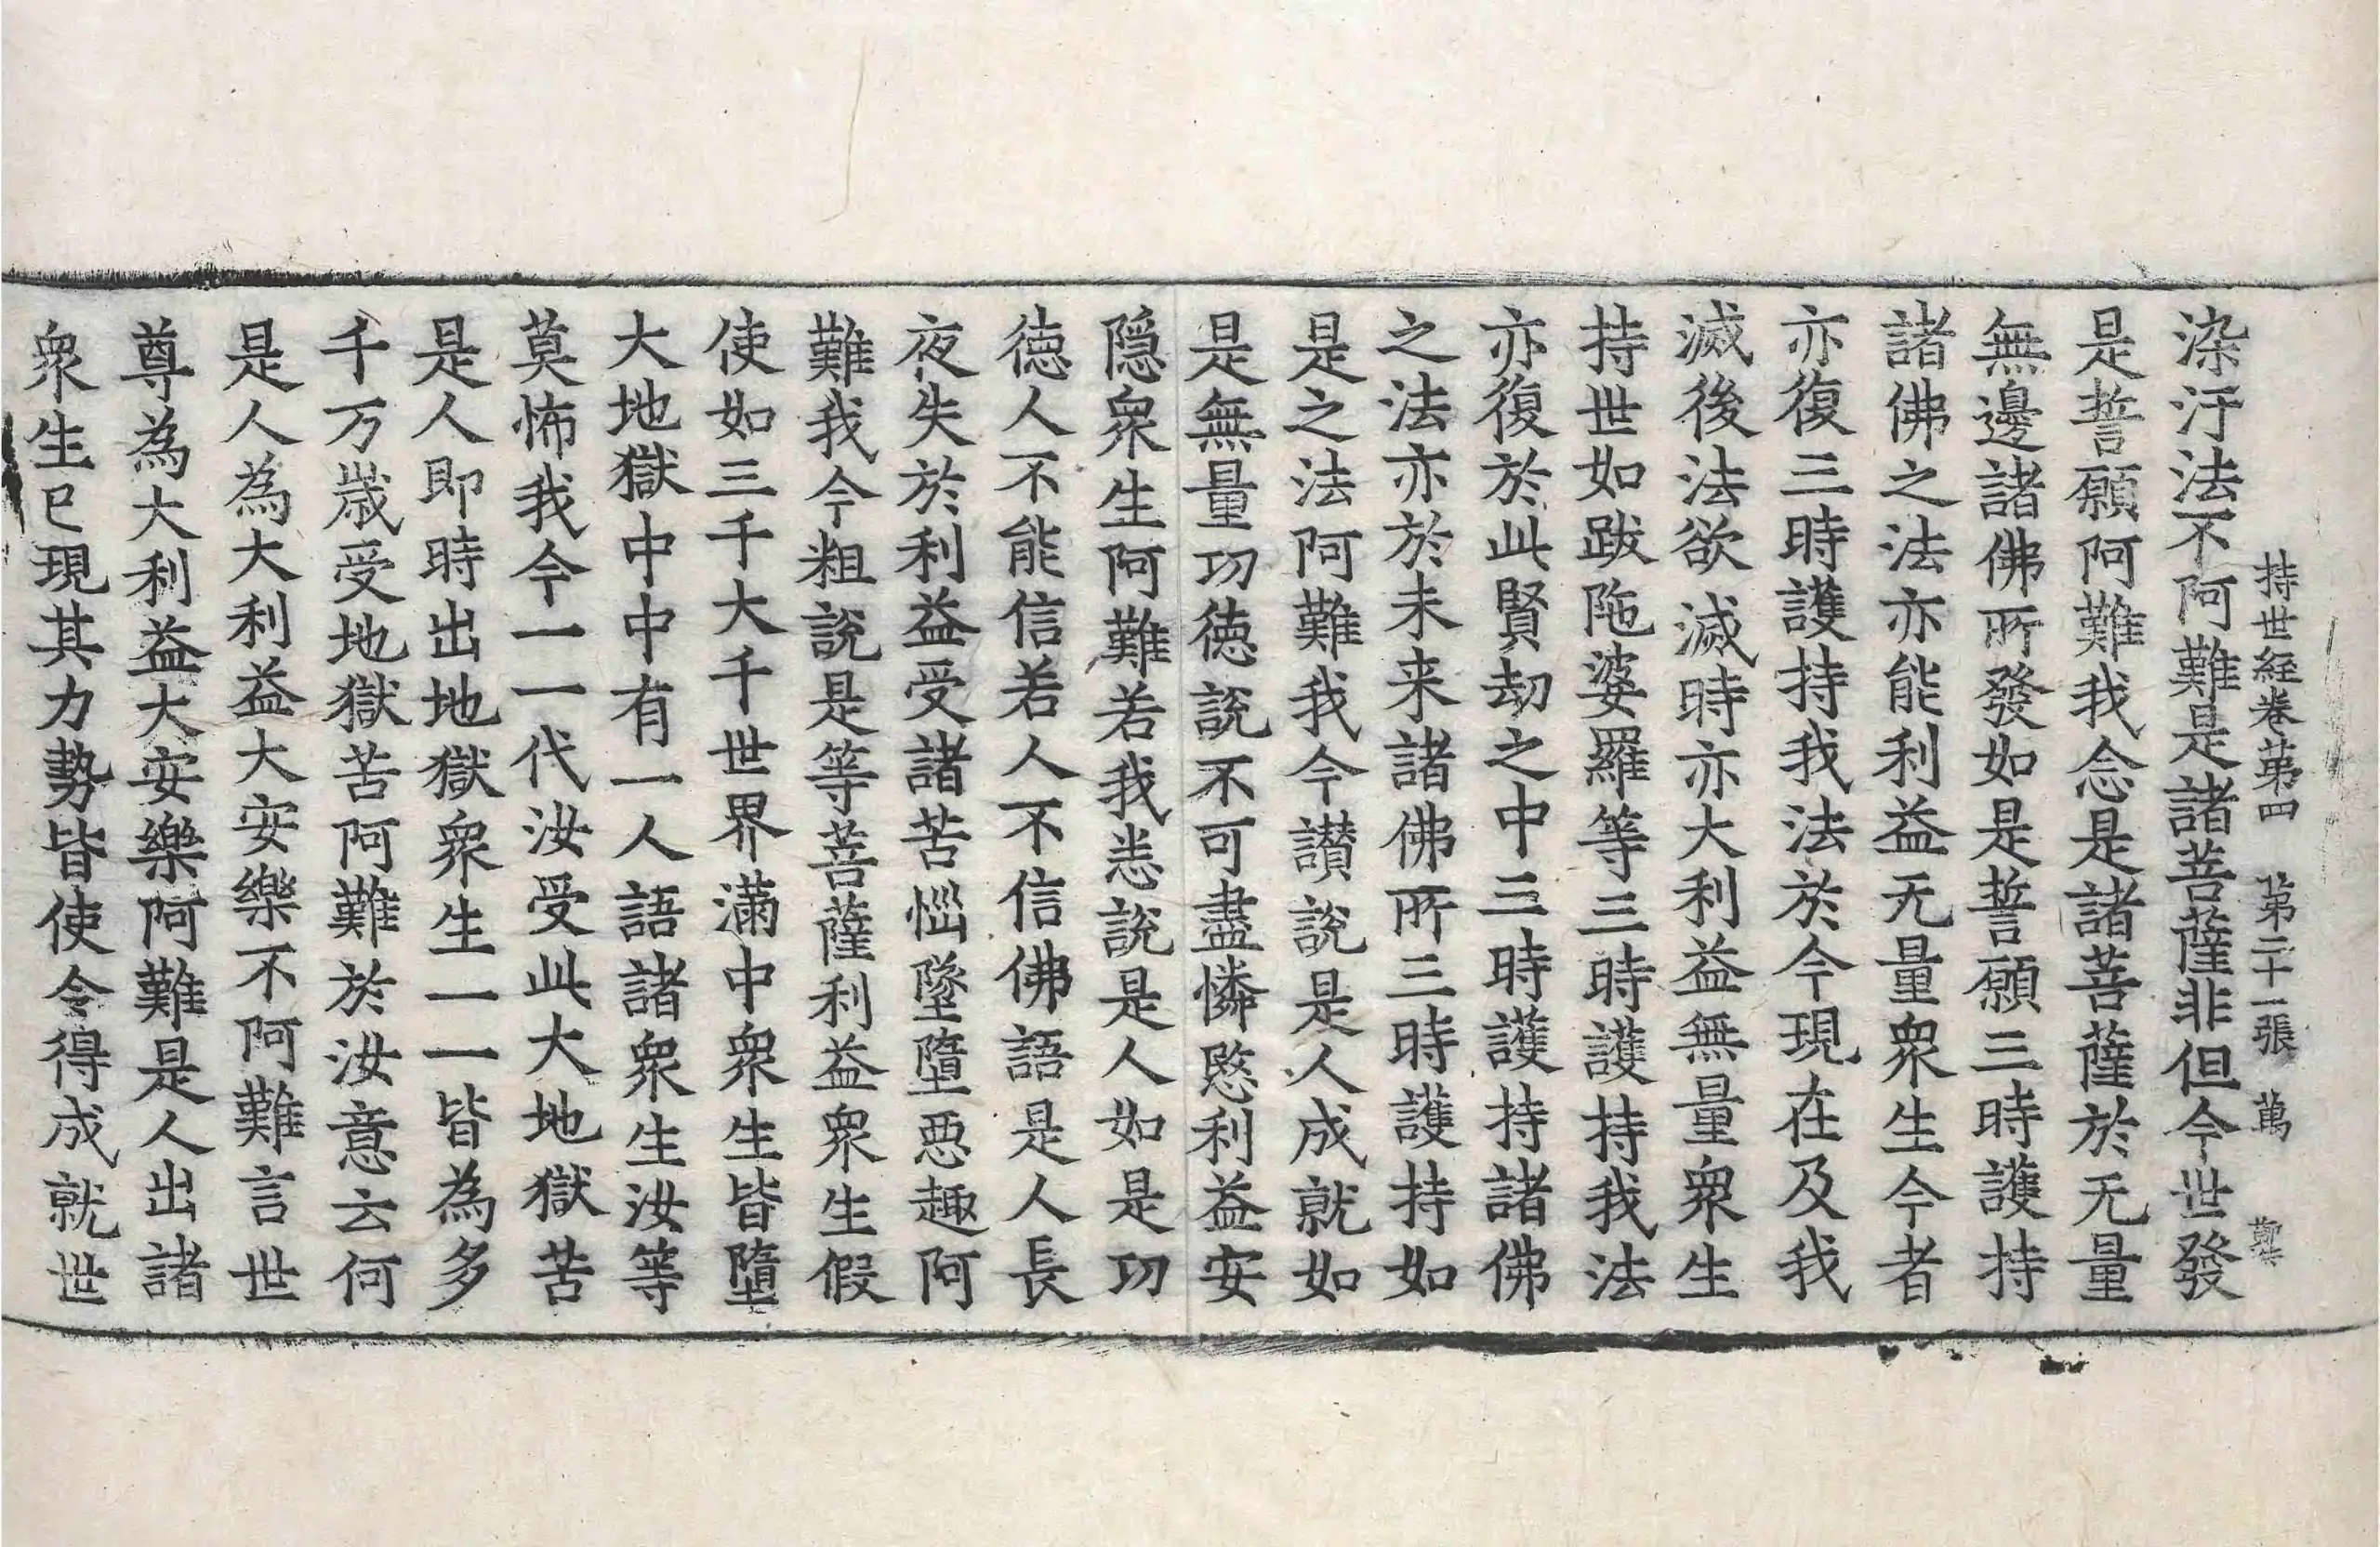 持世経卷苐四　苐二十一張　萬
染汙法不阿難是諸菩薩非但今世發
是誓願阿難我念是諸菩薩於无量
無邊諸佛所發如是誓願三時護持
諸佛之法亦能利益无量衆生今者
亦復三時護持我法於今現在及我
滅後法欲滅時亦大利益無量衆生
持世如跋陁婆羅等三時護持我法
亦復於此賢劫之中三時護持諸佛
之法亦於未来諸佛所三時護持如
是之法阿難我今讃說是人成就如
是無量功徳說不可盡憐愍利益安
隱衆生阿難若我悉說是人如是功
徳人不能信若人不信佛語是人長
夜失於利益受諸苦惱墜墮惡趣阿
難我今粗說是等菩薩利益衆生假
使如三千大千世界滿中衆生皆墮
大地獄中中有一人語諸衆生汝等
莫怖我今一一代汝受此大地獄苦
是人即時出地獄衆生一一皆為多
千万歲受地獄苦阿難於汝意云何
是人為大利益大安樂不阿難言世
尊為大利益大安樂阿難是人出諸
衆生已現其力勢皆使令得成就世